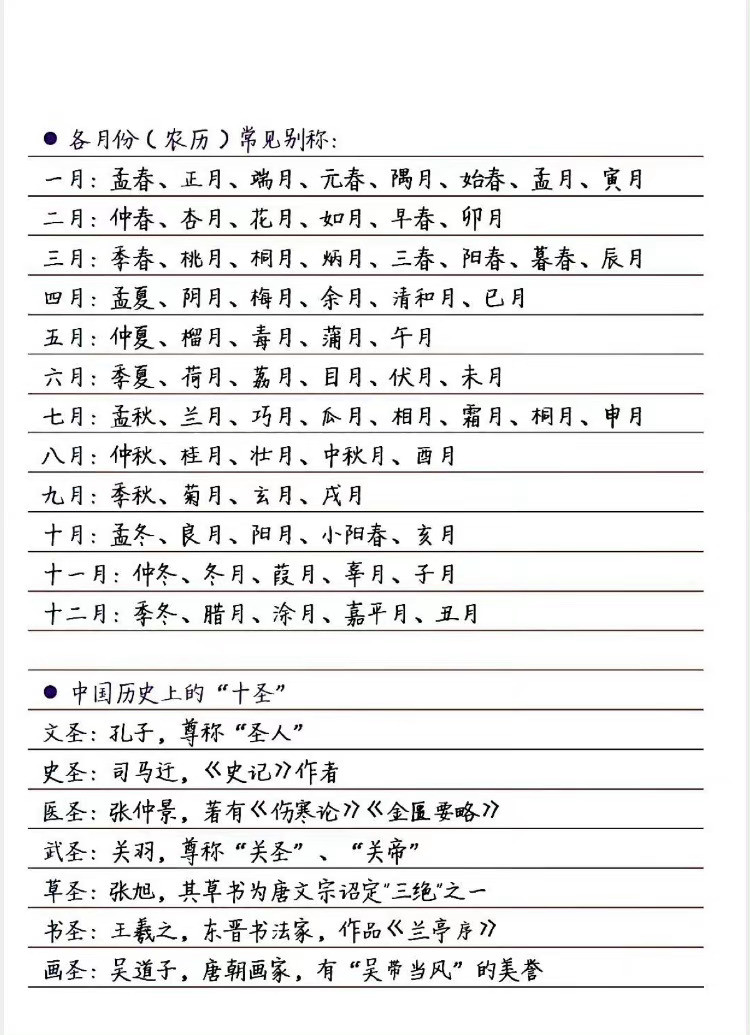 ● 各月份(农历)常见别称:
一月: 孟春、正月、端月、元春、隅月、始春、孟月、寅月
二月: 仲春、杏月、花月、如月、早春、卯月
三月: 季春、桃月、桐月、炳月、三春、阳春、暮春、辰月
四月: 孟夏、阴月、梅月、余月、清和月、已月
五月: 仲夏、榴月、毒月、蒲月、午月
六月: 季夏、荷月、荔月、目月、伏月、未月
七月: 孟秋、兰月、巧月、瓜月、相月、霜月、桐月、申月
八月: 仲秋、桂月、壮月、中秋月、酉月
九月: 季秋、菊月、玄月、戌月
十月: 孟冬、良月、阳月、小阳春、亥月
十一月: 仲冬、冬月、葭月、辜月、子月
十二月: 季冬、腊月、涂月、嘉平月、丑月
● 中国历史上的“十圣”
文圣: 孔子, 尊称“圣人”
史圣: 司马迁,《史记》作者
医圣: 张仲景, 著有《伤寒论》《金匮要略》
武圣: 关羽, 尊称“关圣”、“关帝”
草圣: 张旭, 其草书为唐文宗诏定“三绝”之一
书圣: 王羲之, 东晋书法家, 作品《兰亭序》
画圣: 吴道子, 唐朝画家, 有“吴带当风”的美誉